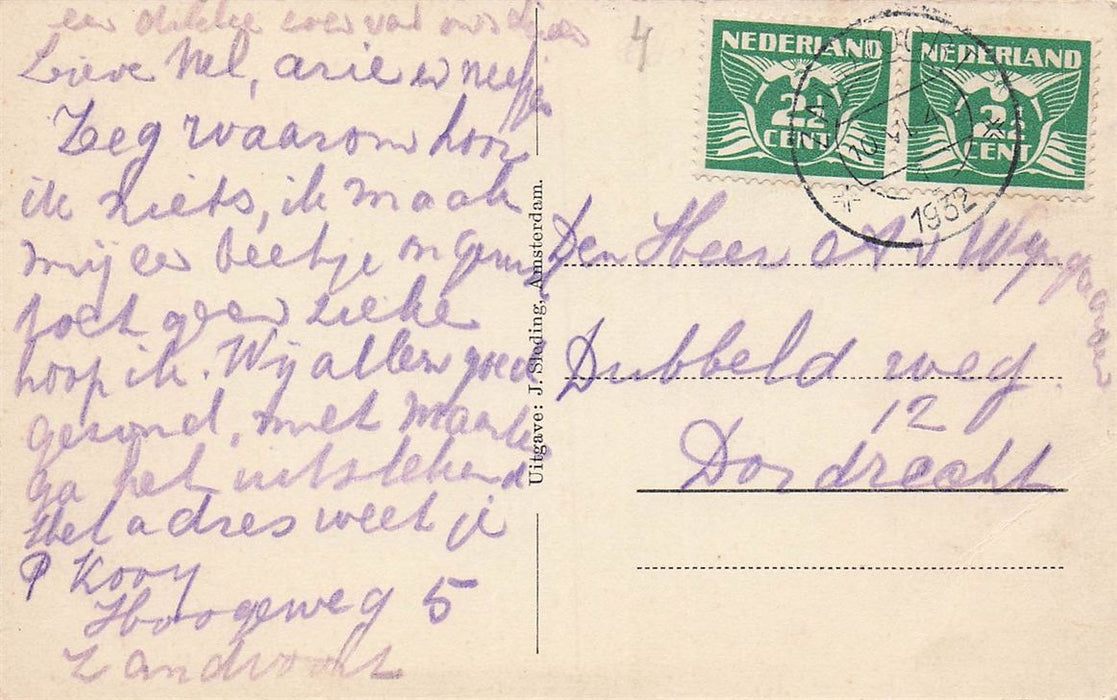 een dikke zoen van ons
Lieve Nel, Arie en neefje
Zeg waarom hoor
ik niets, ik maak
mij een beetje ongerust
toch geen zieke
hoop ik. Wij allen goed
gezond, met Maartje
ga het uitstekend
Het adres weet je
P Kooy
Hoogeweg 5
Zandvoort
4
Uitgave: J. Sleding, Amsterdam.
NEDERLAND
2½
CENT
NEDERLAND
2½
CENT
10 VI
1932
Den Heer A v Wyngaarden
Dubbeld weg
12
Dordrecht